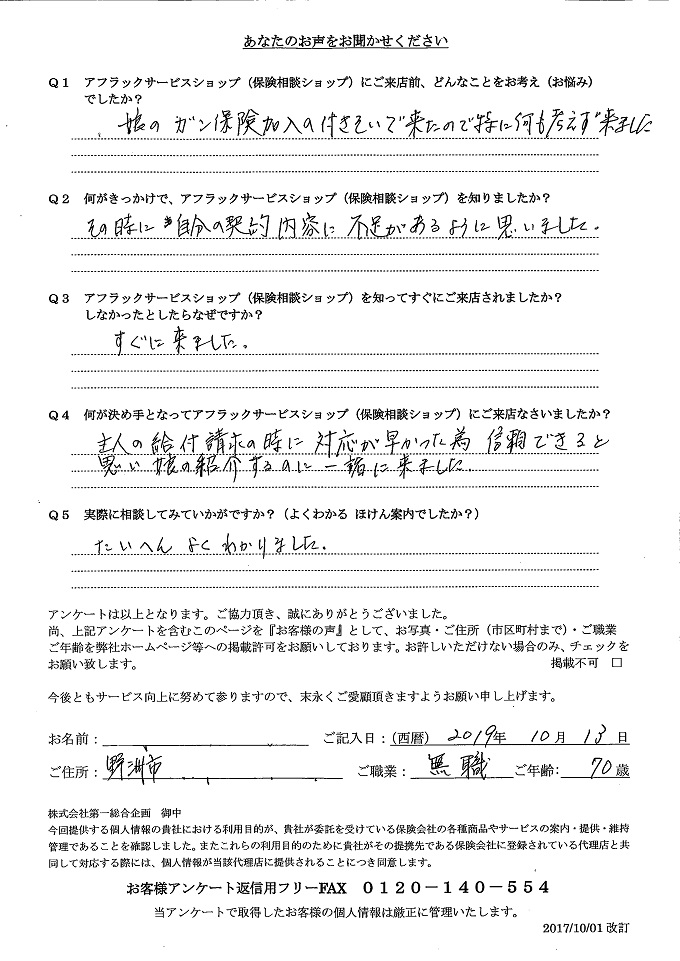 あなたのお声をお聞かせください
Q1 アフラックサービスショップ（保険相談ショップ）にご来店前、どんなことをお考え（お悩み）
でしたか？
娘の ガン保険加入の付きそいで来たので特に何も考えず来ました
Q2 何がきっかけで、アフラックサービスショップ（保険相談ショップ）を知りましたか？
その時に 自分の契約内容に 不足があるように思いました。
Q3 アフラックサービスショップ（保険相談ショップ）を知ってすぐにご来店されましたか？
しなかったとしたらなぜですか？
すぐに来ました。
Q4 何が決め手となってアフラックサービスショップ（保険相談ショップ）にご来店なさいましたか？
主人の給付請求の時に 対応が早かった為 信頼できると
思い 娘の紹介するのに一緒に来ました。
Q5 実際に相談してみていかがですか？（よくわかる ほけん案内でしたか？）
たいへん よく わかりました。
アンケートは以上となります。ご協力頂き、誠にありがとうございました。
尚、上記アンケートを含むこのページを『お客様の声』として、お写真・ご住所（市区町村まで）・ご職業
ご年齢を弊社ホームページ等への掲載許可をお願いしております。お許しいただけない場合のみ、チェックを
お願い致します。 掲載不可 □
今後ともサービス向上に努めて参りますので、末永くご愛顧頂きますようお願い申し上げます。
お名前： ご記入日：（西暦） 2019年 10月 13日
ご住所： 野洲市 ご職業： 無職 ご年齢： 70歳
株式会社第一総合企画 御中
今回提供する個人情報の貴社における利用目的が、貴社が委託を受けている保険会社の各種商品やサービスの案内・提供・維持
管理であることを確認しました。またこれらの利用目的のために貴社がその提携先である保険会社に登録されている代理店と共
同して対応する際には、個人情報が当該代理店に提供されることにつき同意します。
お客様アンケート返信用フリーFAX 0120－140－554
当アンケートで取得したお客様の個人情報は厳正に管理いたします。
2017/10/01 改訂